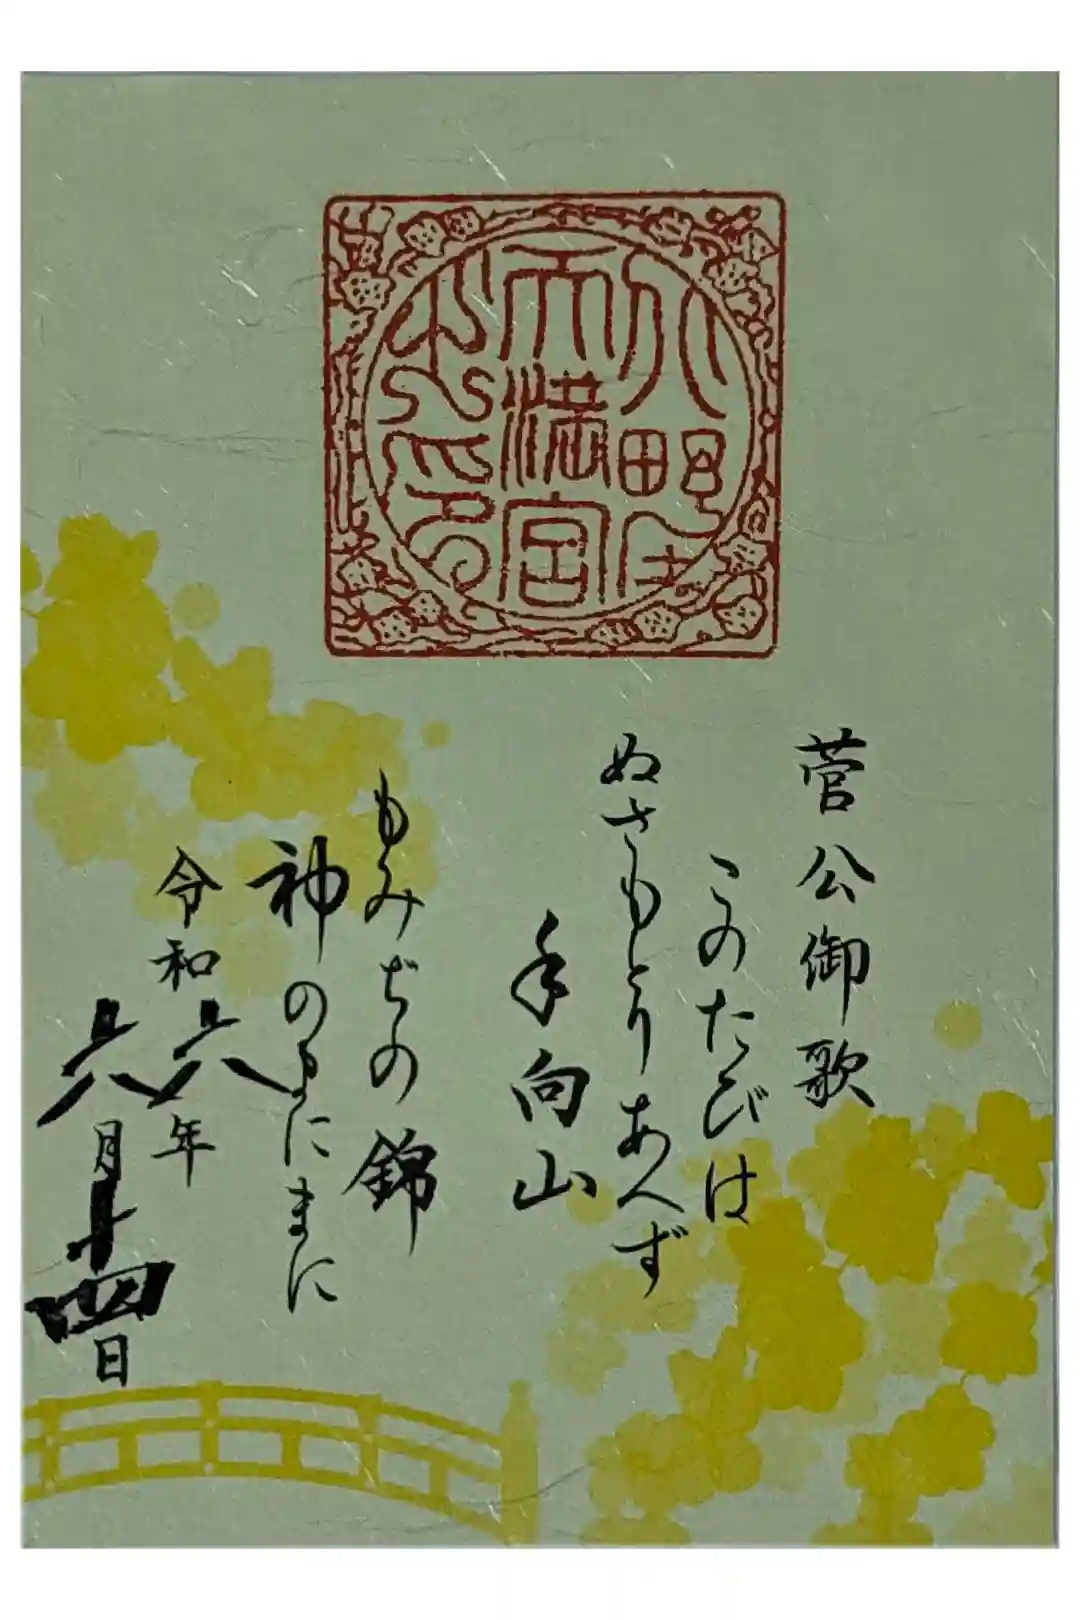 天満宮
菅公御歌
このたびは
ぬさもとりあへず
手向山
もみぢの錦
神のまにまに
令和六年
六月十四日